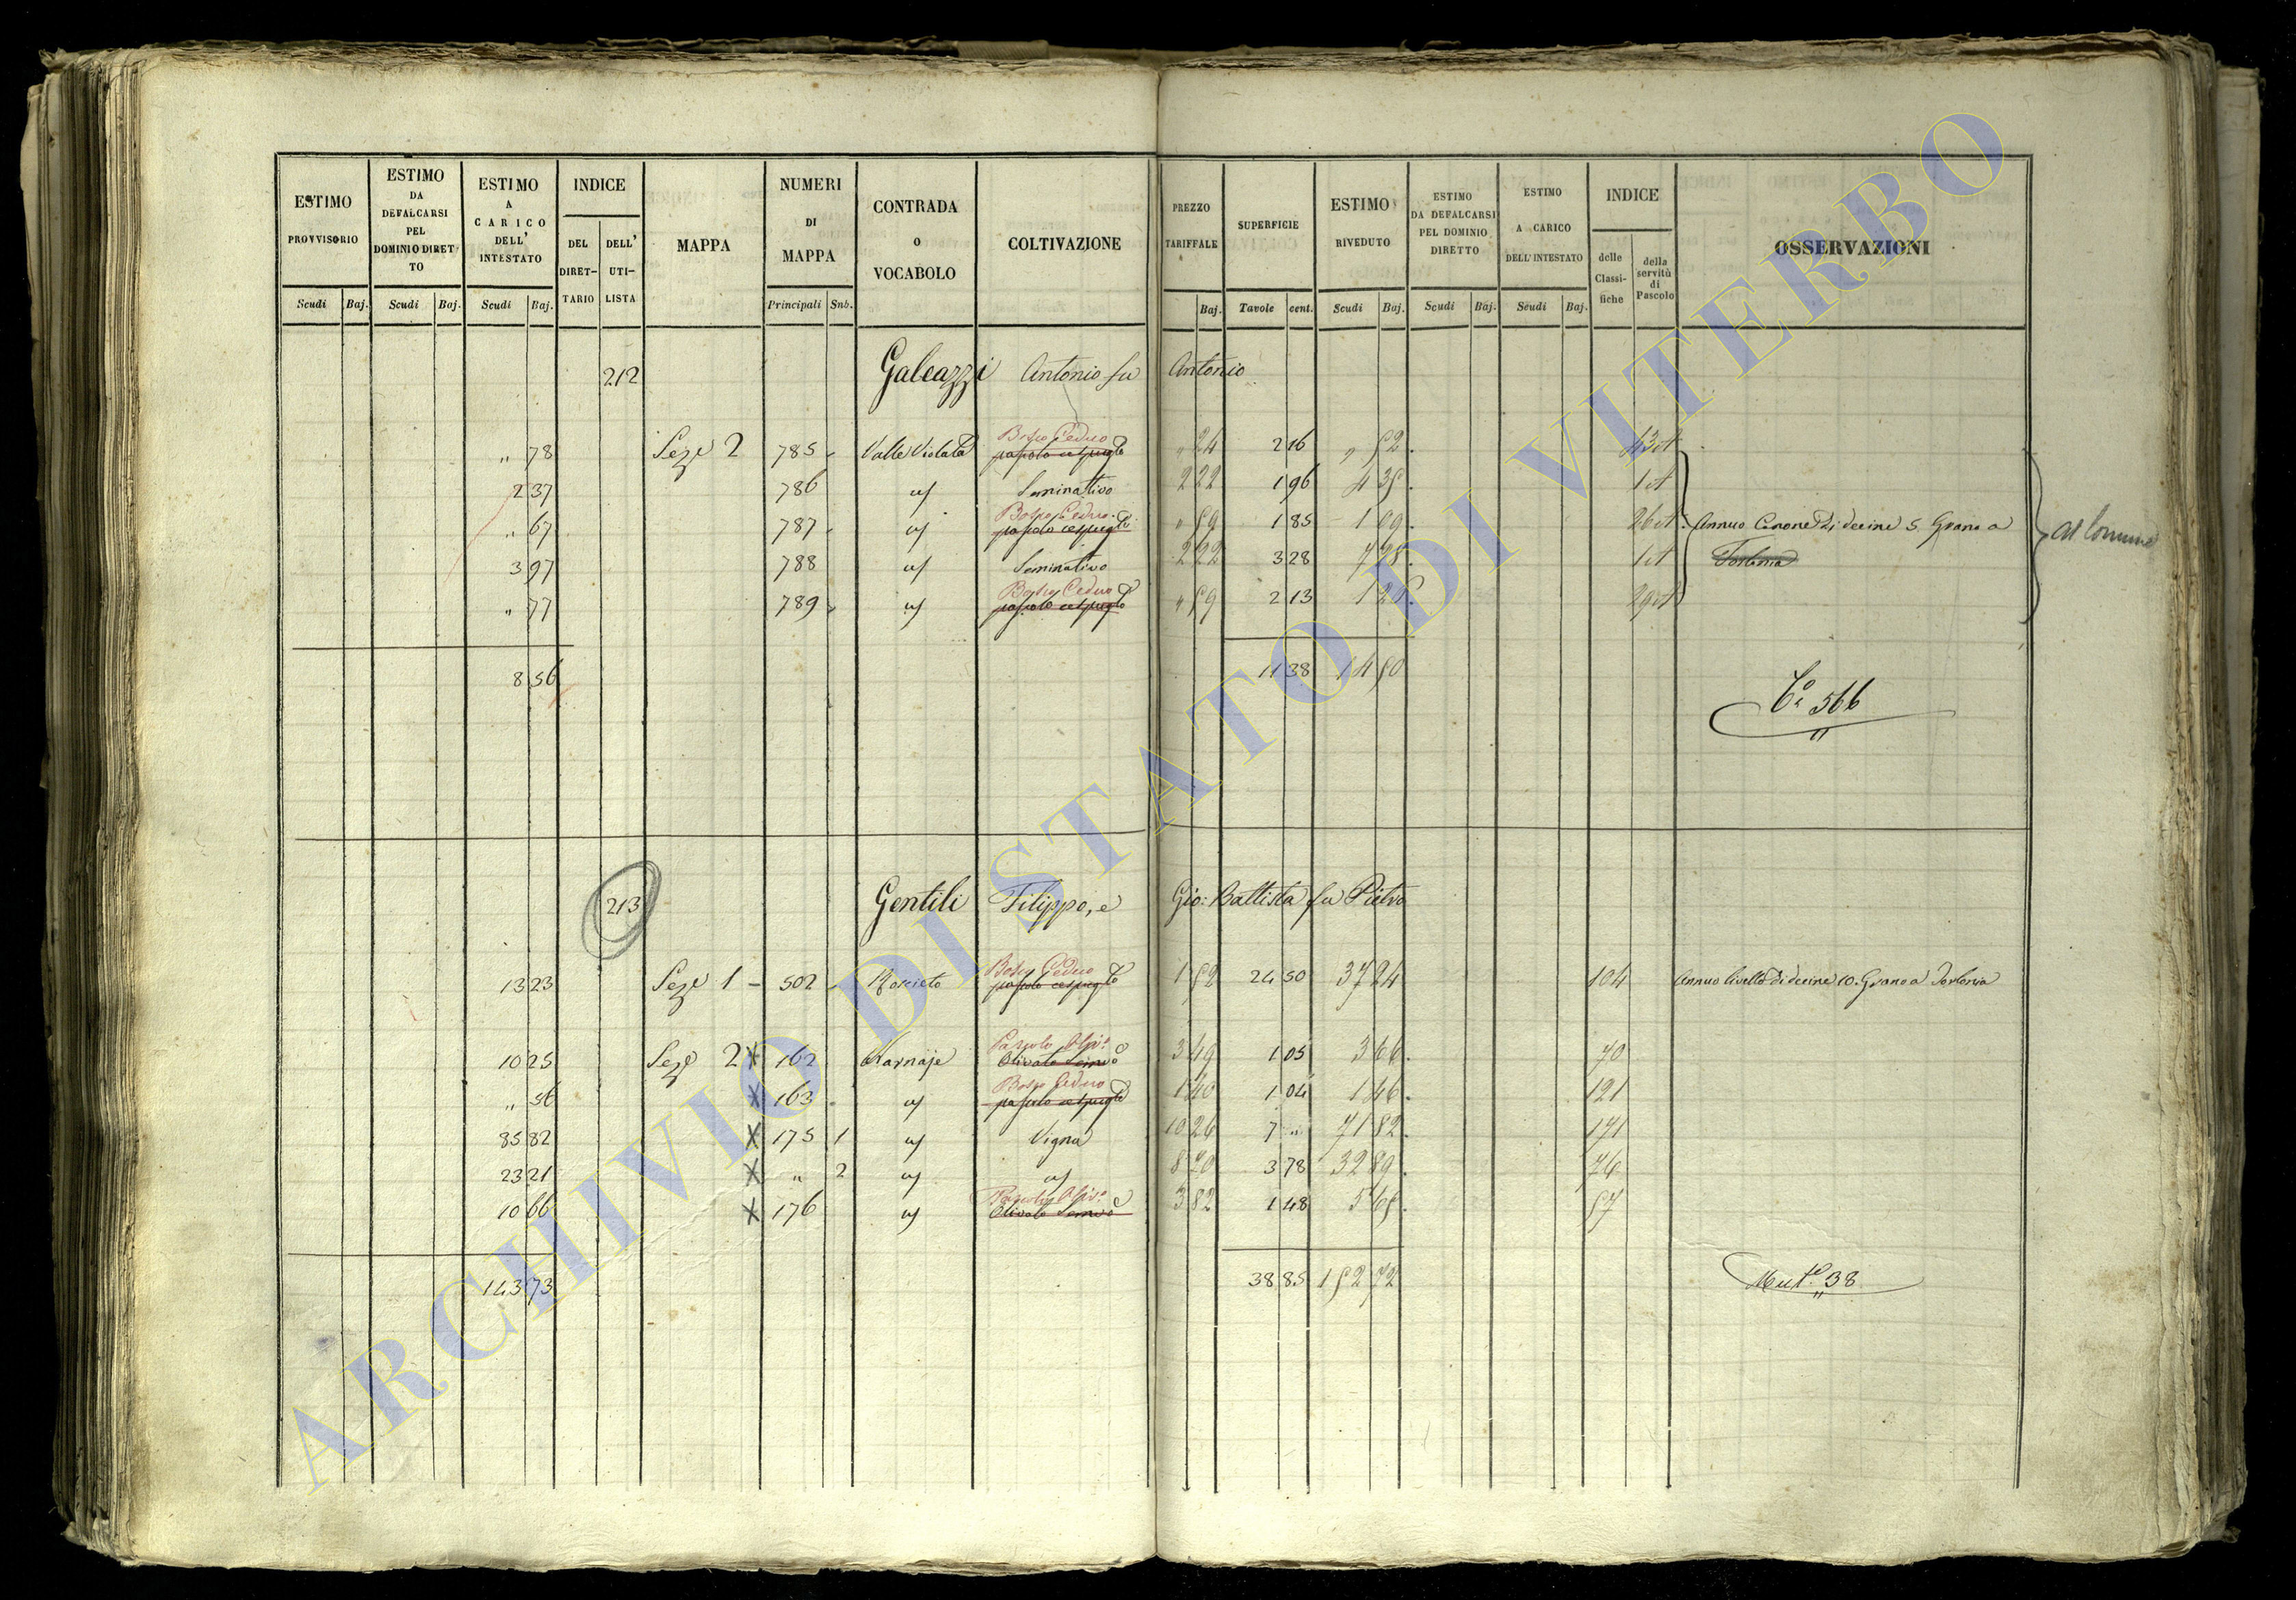 ESTIMO PROVVISORIO
ESTIMO DA DEFALCARSI PEL DOMINIO DIRETTO
ESTIMO A CARICO DELL' INTESTATO
INDICE
DEL DIRETTARIO
DELL' UTILISTA
MAPPA
NUMERI DI MAPPA
CONTRADA O VOCABOLO
COLTIVAZIONE
PREZZO TARIFFALE
SUPERFICIE
ESTIMO RIVEDUTO
ESTIMO DA DEFALCARSI PEL DOMINIO DIRETTO
ESTIMO A CARICO DELL'INTESTATO
INDICE
delle Classifiche
della servitù di Pascolo
OSSERVAZIONI
Scudi Baj. Scudi Baj. Scudi Baj. Principali Sub. Baj. Tavole cent. Scudi Baj. Scudi Baj. Scudi Baj.
212 Galeazzi Antonio fu Antonio
" 78 Seze 2 785 Valle Violata Bosco Ceduo pascolo cespugto " 24 2 16 " 52 43 ct
2 37 786 Seminativo 2 22 1 96 4 35 1 ct
" 67 787 Bosco Ceduo pascolo cespugto " 59 1 85 1 09 26 ct Annuo Canone di decine 5 Grano a
3 97 788 Seminativo 2 22 3 28 7 28 1 ct Torlonia
" 77 789 Bosco Ceduo pascolo cespugto " 59 2 13 1 26 29 ct
al Comune
8 56 11 38 14 50
Ca 566
213 Gentili Filippo, e Gio: Battista fu Pietro
13 23 Seze 1 - 502 Bosco Ceduo pascolo cespugto 1 52 24 50 37 24 104 Annuo livello di decine 10. Grano a Torlonia
10 25 Seze 2 X 162 Olivato Semvo 3 49 1 05 3 66 70
" 56 X 163 Bosco Ceduo pascolo cespugto 1 40 1 04 1 46 121
85 82 X 175 1 Vigna 10 26 7 " 71 82 171
23 21 X " 2 8 70 3 78 32 89 76
10 66 X 176 Olivato Semvo 3 82 1 48 5 65 57
143 73 38 85 152 72
Muta 38
ARCHIVIO DI STATO DI VITERBO